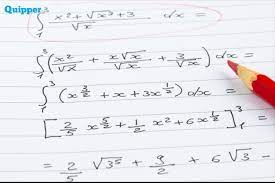 Quipper
∫₁³ (x² + √x³ + 3)/√x dx =
∫₁³ (x²/√x + x√x/√x + 3/√x) dx =
∫₁³ (x^(3/2) + x + 3x^(½)) dx =
[2/5 x^(5/2) + 1/2 x² + 6x^(½)]₁³ =
= 2/5 √3⁵ + 9/2 + 6√3 −